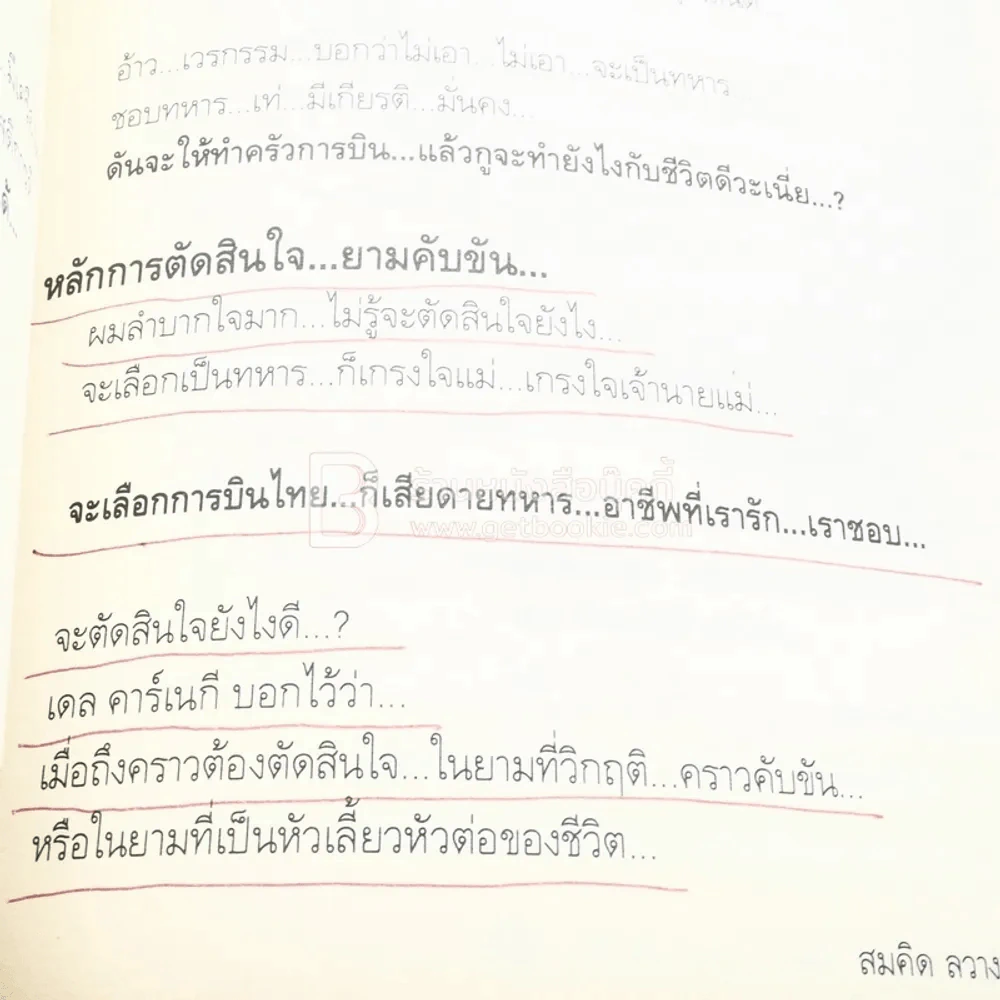 อ้าว...เวรกรรม...บอกว่าไม่เอา...ไม่เอา...จะเป็นทหาร
ชอบทหาร...เท่...มีเกียรติ...มั่นคง...
ดันจะให้ทำครัวการบิน...แล้วกูจะทำยังไงกับชีวิตดีวะเนี่ย...?
หลักการตัดสินใจ...ยามคับขัน...
ผมลำบากใจมาก...ไม่รู้จะตัดสินใจยังไง...
จะเลือกเป็นทหาร...ก็เกรงใจแม่...เกรงใจเจ้านายแม่...
ร้านหนังสือบุ๊คกี้
www.getbookie.com
จะเลือกการบินไทย...ก็เสียดายทหาร...อาชีพที่เรารัก...เราชอบ...
จะตัดสินใจยังไงดี...?
เดล คาร์เนกี บอกไว้ว่า...
เมื่อถึงคราวต้องตัดสินใจ...ในยามที่วิกฤติ...คราวคับขัน...
หรือในยามที่เป็นหัวเลี้ยวหัวต่อของชีวิต...
สมคิด ลวาง